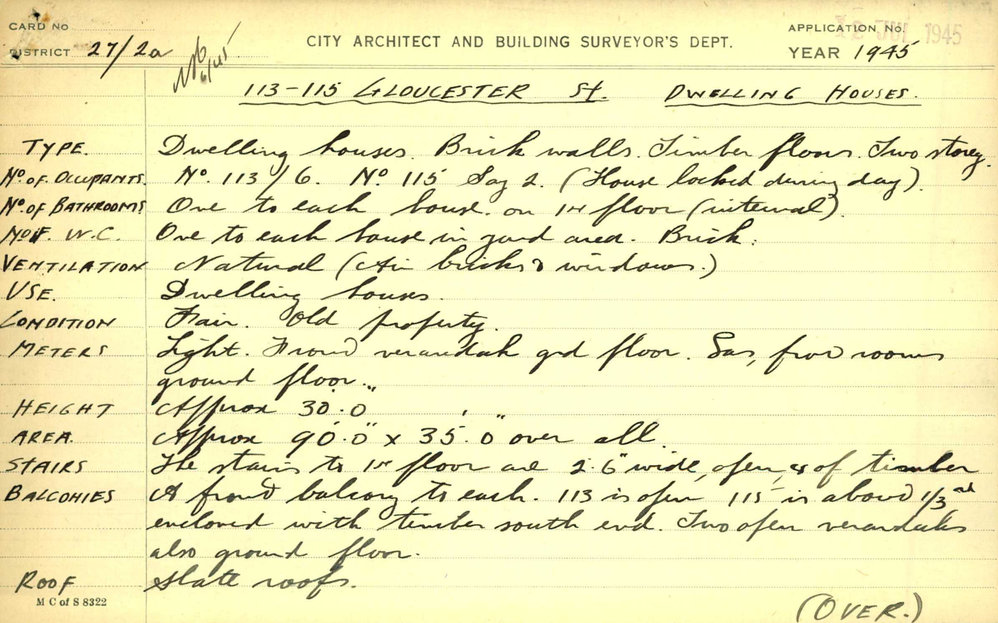 CARD No
DISTRICT 27/2a
CITY ARCHITECT AND BUILDING SURVEYOR'S DEPT.
APPLICATION No.
12 JUN 1945
YEAR 1945
113-115 GLOUCESTER St. DWELLING HOUSES.
TYPE. Dwelling houses. Brick walls. Timber floors. Two storey.
No. of OCCUPANTS. No. 113/6. No. 115 Say 2. (House locked during day).
No. of BATHROOMS One to each house. on 1st floor (internal).
No OF. W.C. One to each house in yard area. Brick.
VENTILATION Natural (Air bricks & windows.)
USE. Dwelling houses.
CONDITION Fair. Old property.
METERS Light. Front verandah grd floor. Gas, front rooms
ground floor.
HEIGHT Approx 30'.0"
AREA. Approx 90'.0" x 35'.0" over all.
STAIRS The stairs to 1st floor are 2'.6" wide, open, & of timber
BALCONIES A front balcony to each. 113 is open 115 is about 1/3rd
enclosed with timber south end. Two open verandahs
also ground floor.
ROOF Slate roofs.
M C of S 8322
(OVER.)